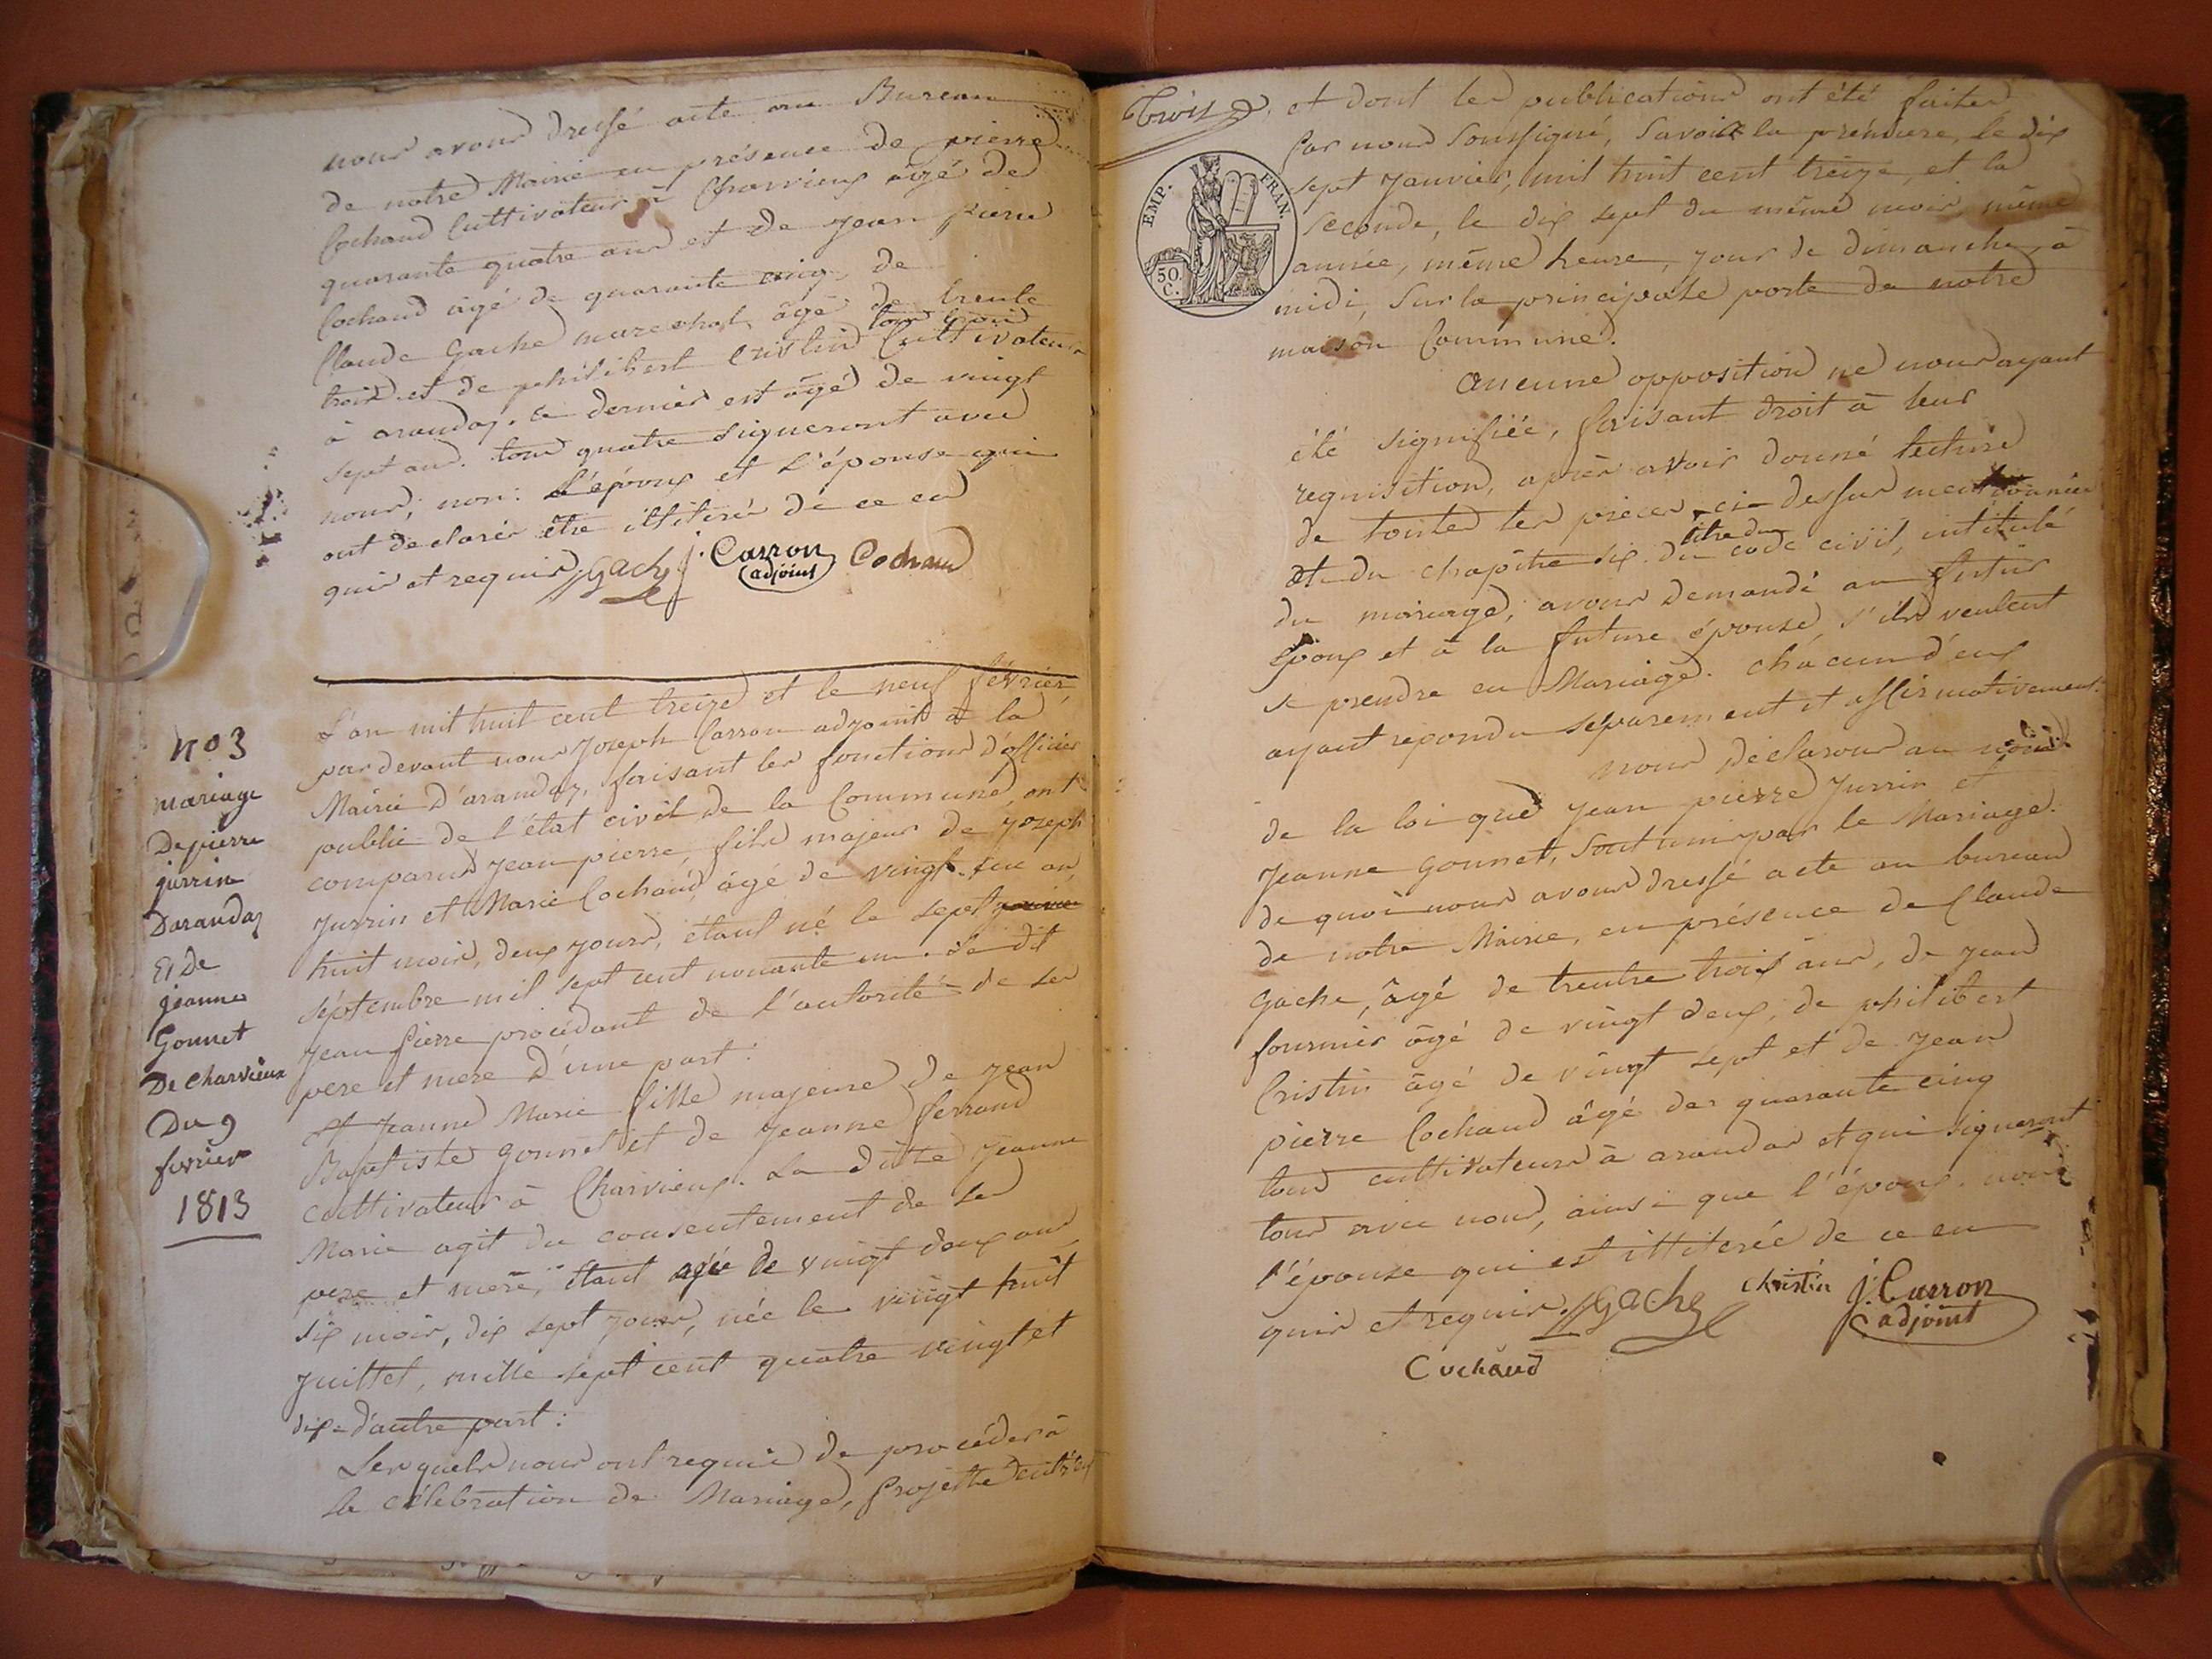 nous avons dressé acte au Bureau
de notre Mairie en présence de pierre
Cochaud Cultivateur à Charvieux âgé de
quarante quatre ans et de Jean pierre
Cochaud âgé de quarante cinq, de
Claude Gache marechal, âgé de trente
trois et de philibert Cristin tous trois Cultivateurs
à arandas. ce dernier est âgé de vingt
sept ans. tous quatre signeront avec
nous; non: L'époux et L'épouse qui
ont declarés être illiterés de ce en
quis et requis. Gache J. Carron adjoint Cochaud
no 3
mariage
De pierre
jurrin
Darandas
Et de
jeanne
Gonnet
De Charvieux
Du 9
fevrier
1813
L'an mil huit cent treize et le neuf février,
par devant nous Joseph Carron adjoint à la
Mairie D'arandas, faisant les fonctions d'officier
public de l'état civil de la Commune, ont
comparus Jean pierre, fils majeur de Joseph
Jurrin et Marie Cochaud, âgé de vingt un an,
huit mois, deux jours, étant né le sept
séptembre mil sept cent nonante un. Le dit
Jean pierre procédant de l'autorité de ses
pere et mere D'une part:
Et Jeanne Marie fille majeure de Jean
Baptiste Gonnet et de Jeanne ferrand
Cultivateur à Charvieux. La ditte Jeanne
Marie agit du consentement de ses
pere et mere, étant agée de vingt deux ans
six mois, dix sept jours, née le vingt huit
juillet, mille sept cent quatre vingt et
dix d'autre part:
Lesquels nous ont requis de procéder à
la célébration de Mariage, projetté entr'eux
Trois
et dont les publications ont été faites
par nous Soussigné, Savoir la première, le dix
sept Janvier, mil huit cent treize et la
seconde, le dix sept du même mois, même
année, même heure, jour de dimanche, à
midi, Sur la principale porte de notre
maison Commune.
EMP. FRAN.
50. C.
aucune opposition ne nous ayant
été signifiée, faisant droit à leur
requisition, après avoir donné lecture
de toutes les pièces ci-dessus mentionnées
et du chapitre six du titre du code civil, intitulé
du mariage, avons demandé au futur
époux et à la future épouse, s'ils veulent
se prendre en Mariage. chacun d'eux
ayant répondu séparement et affirmativement.
nous déclarons au nom
de la loi que Jean pierre Jurrin et
Jeanne gonnet, Sont unis par le Mariage.
de quoi nous avons dressé acte au bureau
de notre Mairie, en présence de Claude
Gache, âgé de trentre trois ans, de Jean
fournier âgé de vingt deux, de philibert
Cristin âgé de vingt sept et de Jean
pierre Cochaud âgé de quarante cinq
tous cultivateurs à arandas et qui signeront
tous avec nous, ainsi que l'époux. non
l'épouse qui est illiterée de ce en
quis et requis. Gache Christin J. Carron
adjoint
Cochaud